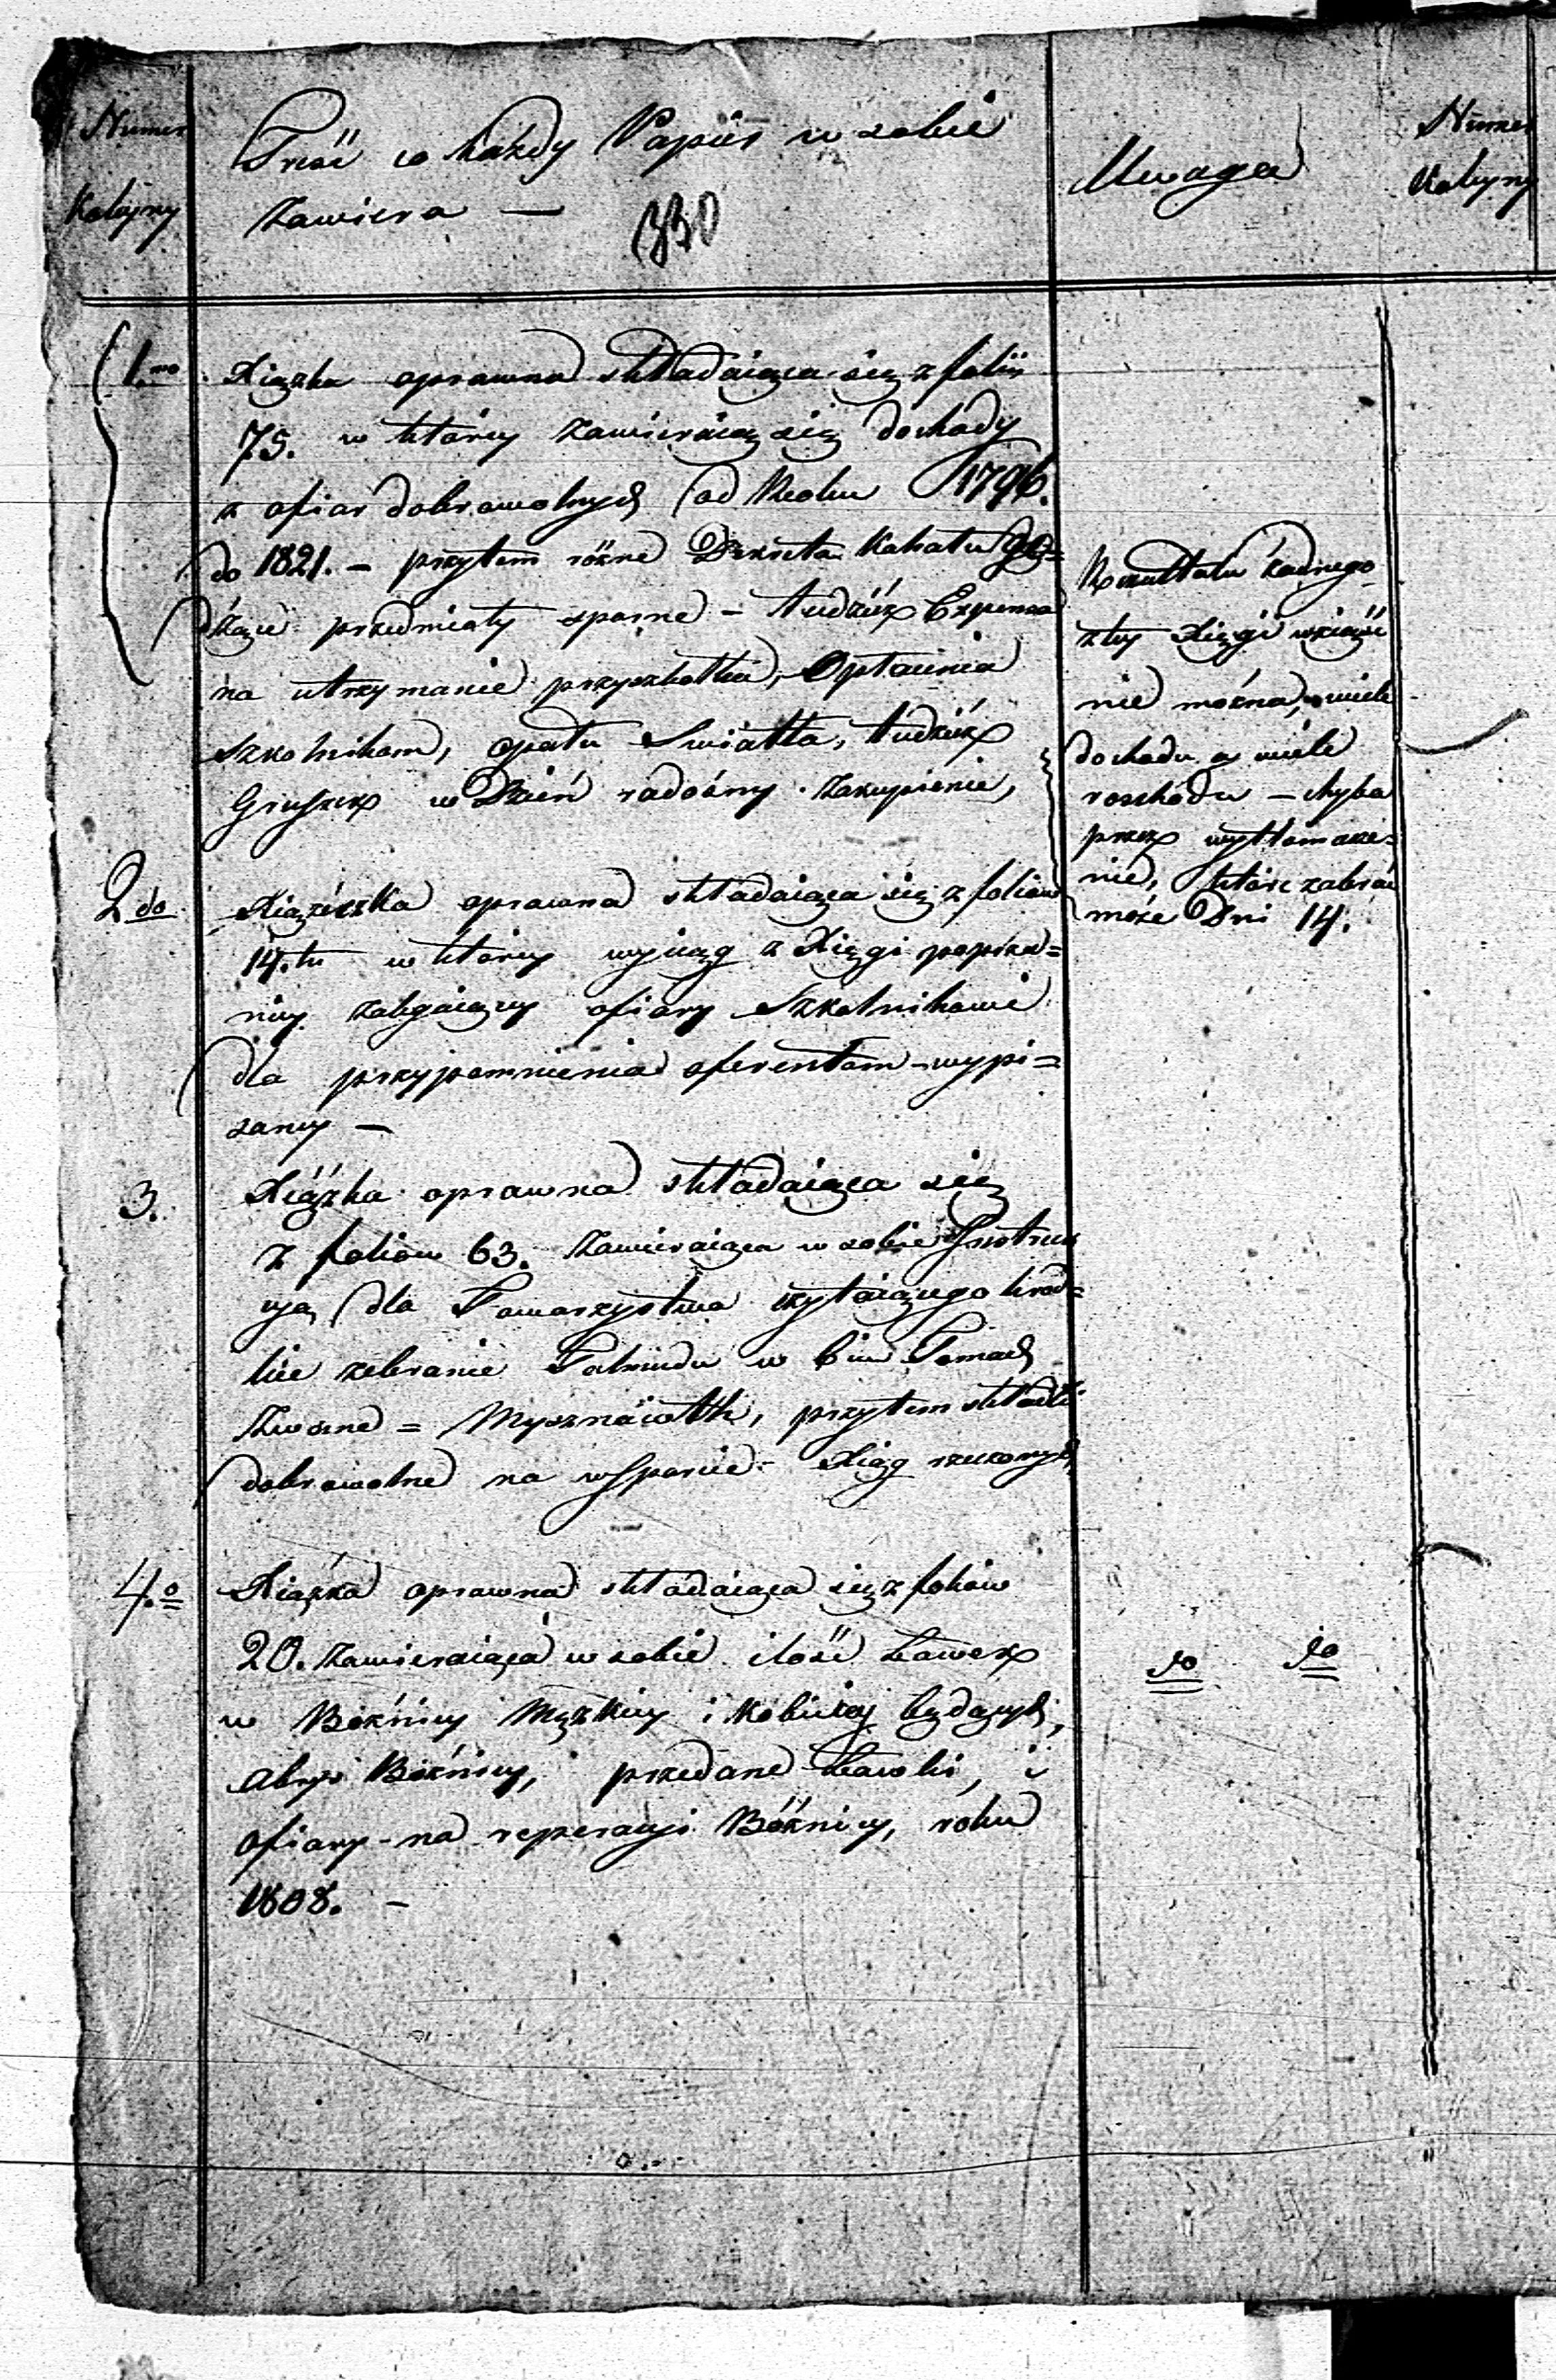 Numer
Kolejny
Treść co każdy Papier w sobie
zawiera —
330
Uwaga
Numer
Kolejny
1.mo
Xiązka oprawna składaiąca się z folii
75. w którey zawieraią się dochody
z ofiar dobrowolnych od Roku 1796.
do 1821. – przytem różne Dekreta Kahału
przedmioty sporne – tudzież Expensa
na utrzymanie przyszkolka, Opłacenia
Szkolnikom, opału Swiatła, tudzież
Gruszek w Dzień radośny zakupienie,
Rezultatu żadnego
z tey Xięgi wziąść
nie można, wiele
dochodu a wiele
roschodu – chyba
przez wytłomacze=
nie, które zabrać
może Dni 14.
2do
Xiążeczka oprawna składaiąca się z foliow
14.tu w którey wyciąg z Xięgi poprze=
niey zalegaiącey ofiary Szkolnikowi
dla przypomnienia oferentom wypi=
saney —
3.
Xiążka oprawna składaiąca się
z foliow 63. zawieraiąca w sobie Instruk
cyą dla Towarzystwa czytaiącego krot=
kie zebranie Talmudu w 6iu Tomach
zwane = Mysznaiwth, przytem składki
dobrowolne na wsparcie Xiąg rzeczonych,
4.o
Xiążka oprawna składaiąca się z foliow
20. zawieraiąca w sobie ilość Ławek
w Bóżnicy Męzkiey i Kobiecey będących,
abrys Bóżnicy, przedane Ławki, i
ofiary na reperacyi Bóżnicy, roku
1808. –